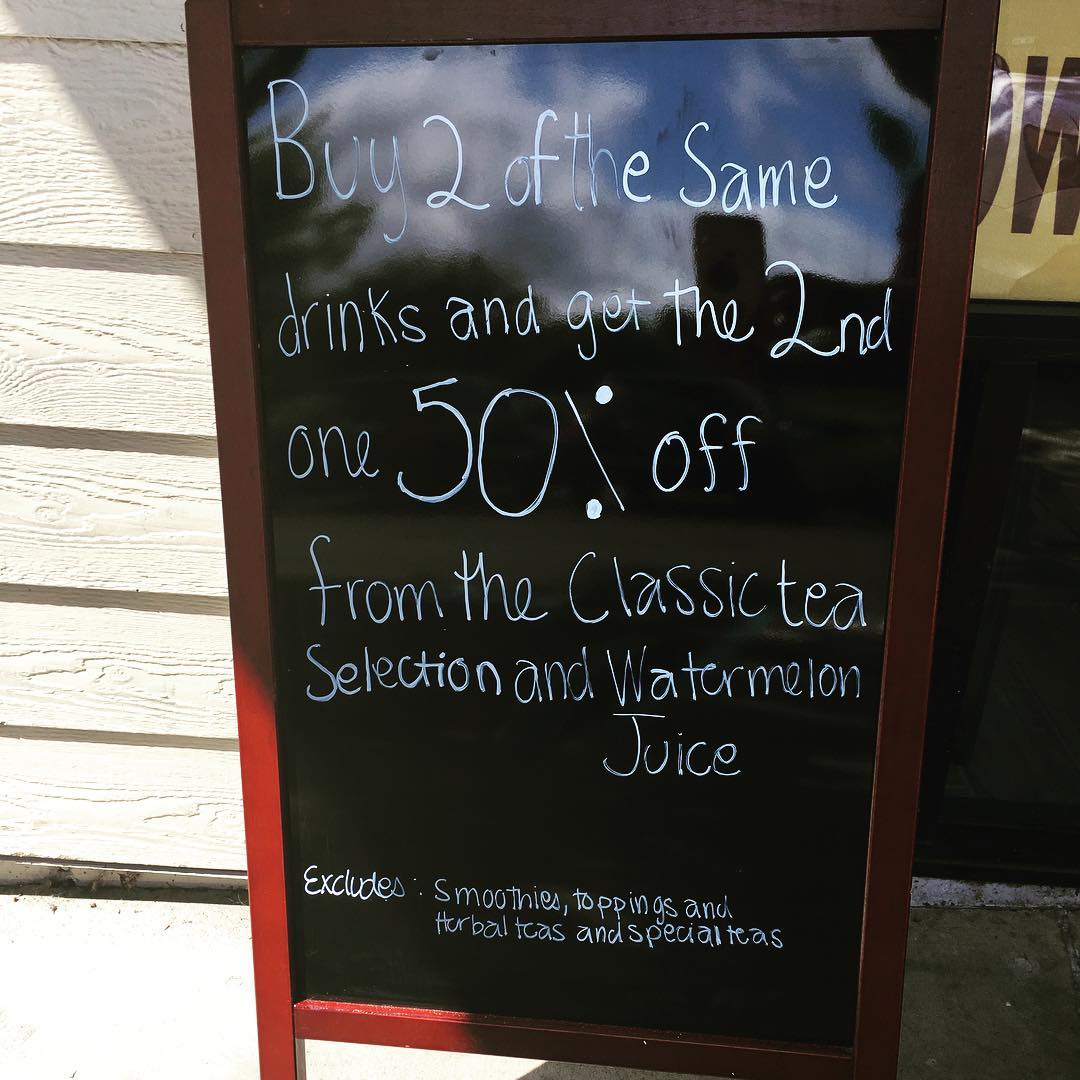 Buy 2 of the Same
drinks and get the 2nd
one 50% off
from the Classic tea
Selection and Watermelon
Juice
Excludes: Smoothies, toppings and
Herbal teas and special teas